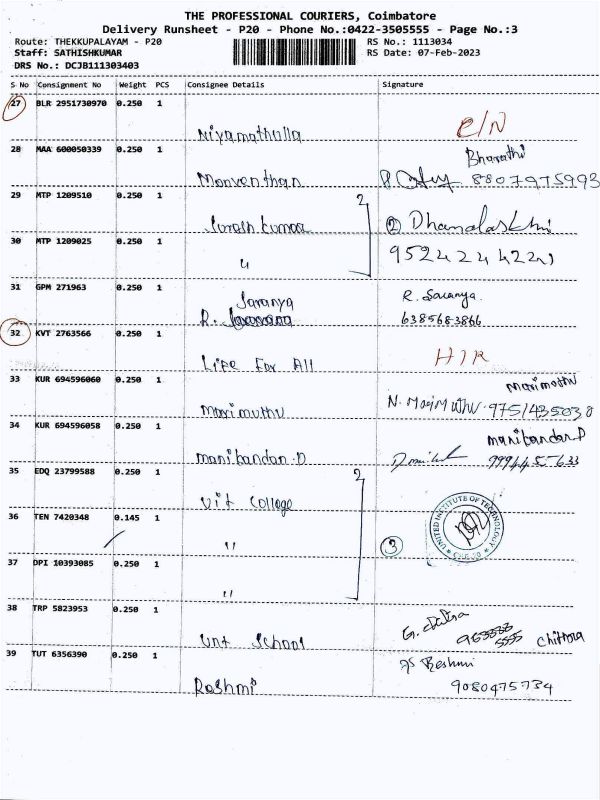 THE PROFESSIONAL COURIERS, Coimbatore
Delivery Runsheet - P20 - Phone No.:0422-3505555 - Page No.:3
Route: THEKKUPALAYAM - P20
RS No.: 1113034
Staff: SATHISHKUMAR
RS Date: 07-Feb-2023
DRS No.: DCJB111303403
S No Consignment No Weight PCS Consignee Details Signature
27 BLR 2951730970 0.250 1
Niyamathulla
28 MAA 600050339 0.250 1
Bharathi
Monventhan 8807975993
29 MTP 1209510 0.250 1
2
Suresh kumar
② Dhanalaskhi
30 MTP 1209025 0.250 1
"
31 GPM 271963 0.250 1
Saranya R. Saranya.
R. 6385683866
32 KVT 2763566 0.250 1
Life For All
33 KUR 694596060 0.250 1
Marimuthu
Marimuthu N. MariMuthu. 9751435030
34 KUR 694596058 0.250 1
Manikandan.P
Manikandan.D 9994457633
35 EDQ 23799588 0.250 1
2
Uit College
UNITED INSTITUTE OF TECHNOLOGY
36 TEN 7420348 0.145 1
"
③
37 DPI 10393085 0.250 1
"
38 TRP 5823953 0.250 1
G. Chitra
Unt School
Chithra
39 TUT 6356390 0.250 1
Reshmi
Rashmi 9080475734